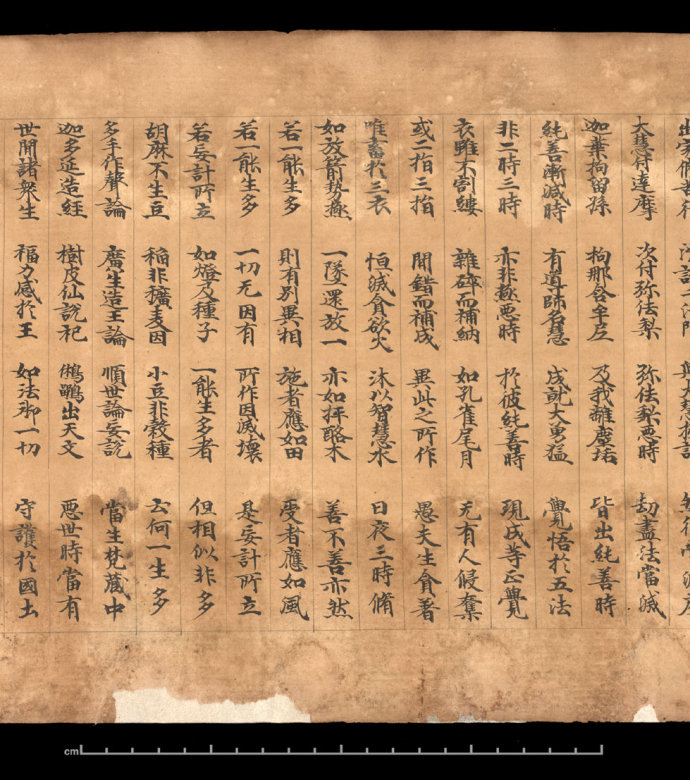 大慧付達摩 次付弥佉梨 弥佉梨惡時 劫盡法當滅
迦葉拘留孫 拘那含牟尼 及我離塵垢 皆出純善時
純善漸減時 有導師名慧 成就大勇猛 覺悟於五法
非二時三時 亦非極惡時 於彼純善時 現成等正覺
衣雖不割縷 雜碎而補納 如孔雀尾目 无有人侵奪
或二指三指 間錯而補成 異此之所作 愚夫生貪著
唯畜於三衣 恒滅貪欲火 沐以智慧水 日夜三時脩
如放箭勢極 一墜還放一 亦如抨酪木 善不善亦然
若一能生多 則有別異相 施者應如田 受者應如風
若一能生多 一切无因有 所作因滅壞 是妄計所立
若妄計所立 如燈及種子 一能生多者 但相似非多
胡麻不生豆 稻非穬麦因 小豆非穀種 云何一生多
名手作聲論 廣主造王論 順世論妄說 當生梵藏中
迦多延造經 樹皮仙說祀 鵂鶹出天文 惡世時當有
世間諸眾生 福力感於王 如法御一切 守護於國土
cm